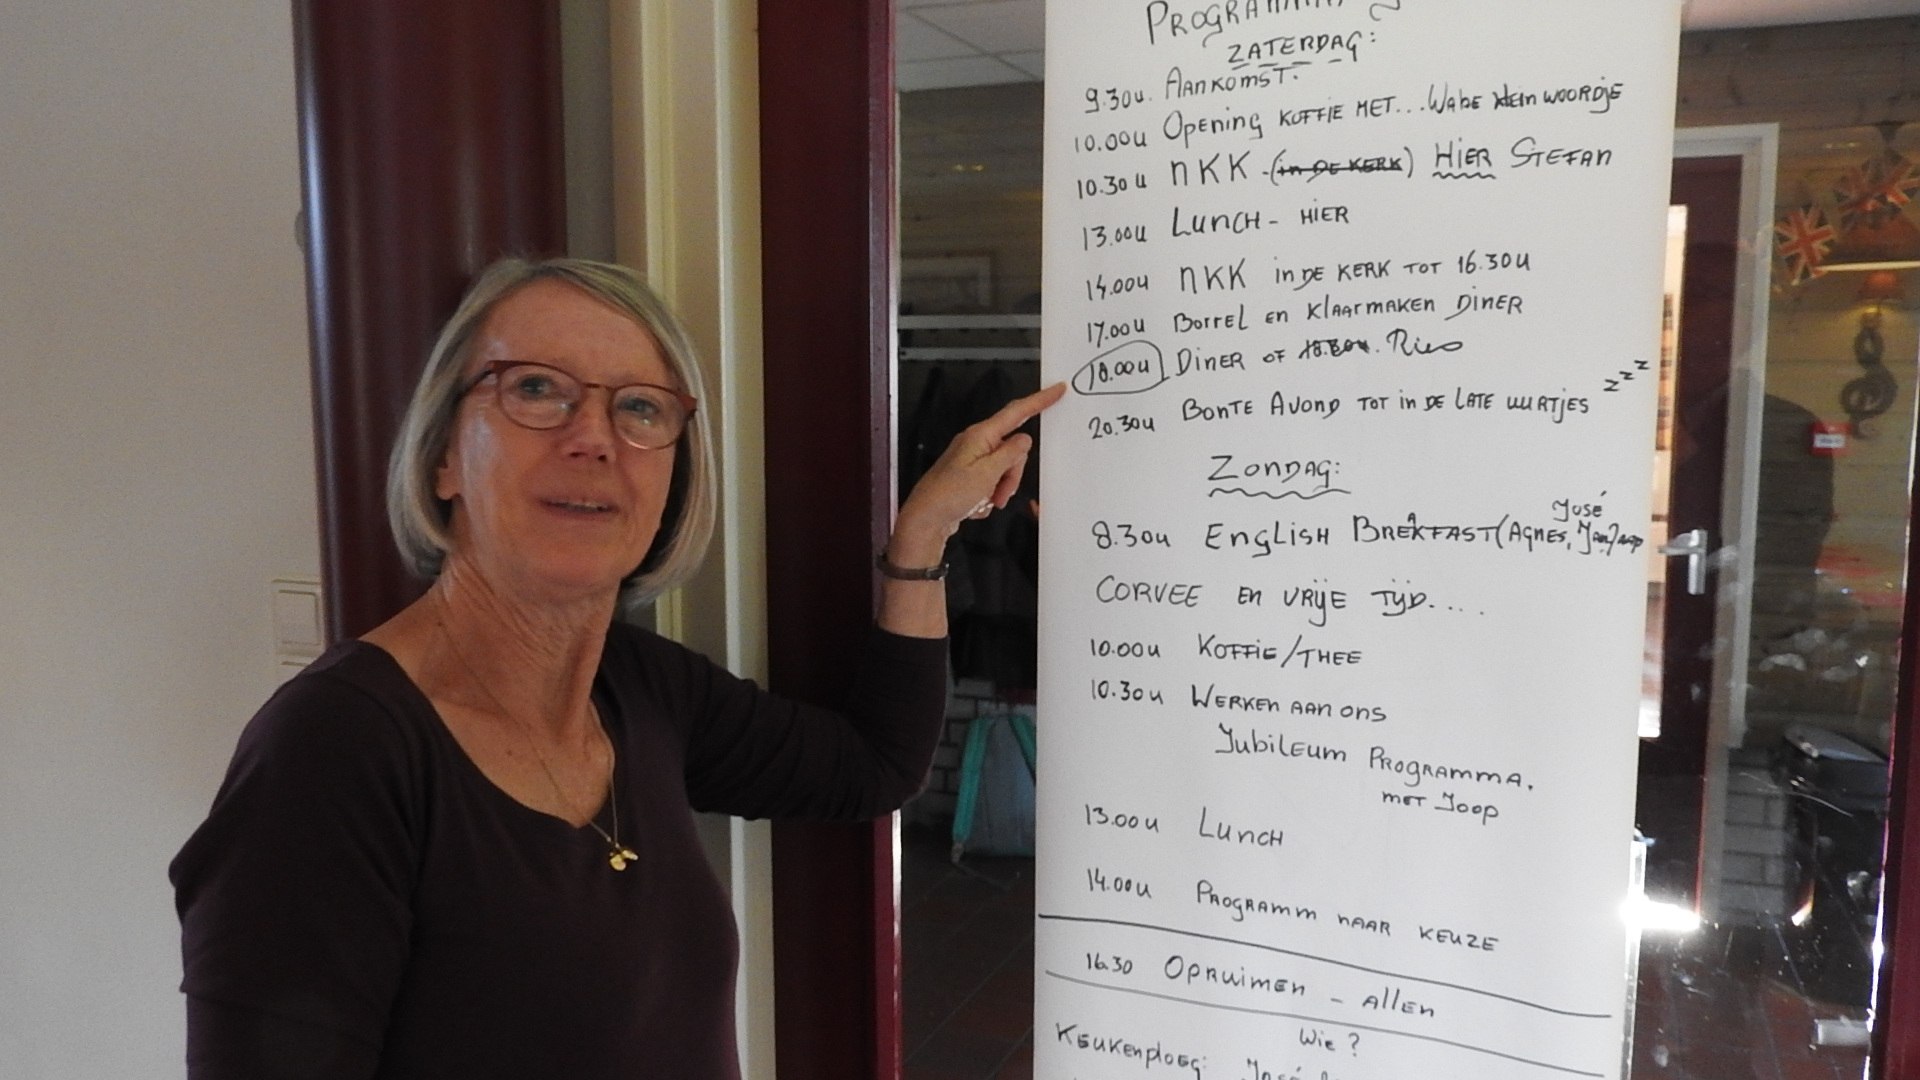 PROGRAMMA
ZATERDAG:
9.30u. AANKOMST.
10.00u Opening KOFFIE MET... Wabe klein WOORDJE
10.30u NKK - (in DE KERK) HIER STEFAN
13.00u LUNCH - HIER
14.00u NKK in DE KERK TOT 16.30u
17.00u Borrel en KlaarMAKEN DINER
18.00u DINER OF 18.30u. Rico
20.30u BONTE AVOND TOT in DE LATE UURTJES zzz
ZONDAG:
José
8.30u ENGLISH BREAKFAST (AGNES, Jaap
CORVEE EN VRIJE TIJD.....
10.00u KOFFIE/THEE
10.30u WERKEN AAN ONS
JubiLEUM PROGRAMMA.
MET JOOP
13.00u LUNCH
14.00u PROGRAMM NAAR KEUZE
16.30 OPRUIMEN - ALLEN
Wie?
KEUKENPLOEG: José